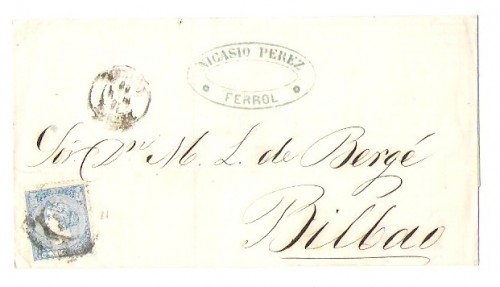 NICASIO PEREZ
FERROL
Sor Dn M. L. de Bergé
Bilbao